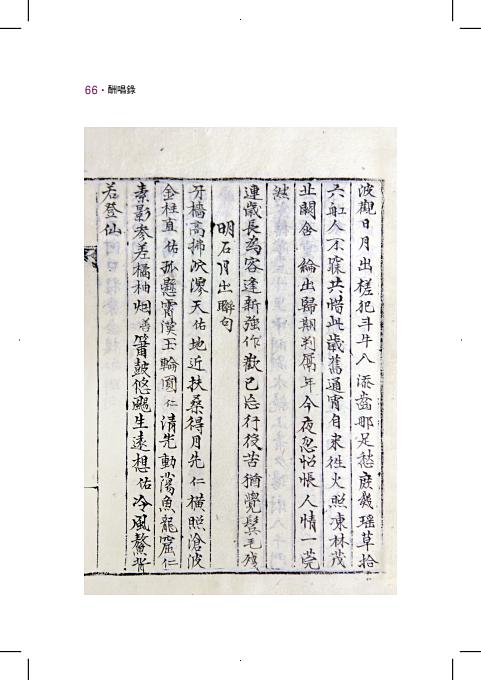 66 · 酬唱錄
波觀日月出槎犯斗牛八添齒那足愁庭發瑶草拾
六缸人不寐共惜此歲舊通宵自来徃火照凍林茂
北闕含綸出歸期判属年今夜忽怊悵人情一莞
然
連歲長為客逢新強作歡已忘行役苦猶覺鬂毛殘
明石月出聯句
牙檣高拂泬漻天佑地近扶桑得月先仁橫照滄波
金柱直佑孤懸霄漢玉輪圓仁清光動蕩魚龍窟仁
素影參差橘柚烟善簫鼓悠颺生遠想佑冷風鰲背
若登仙